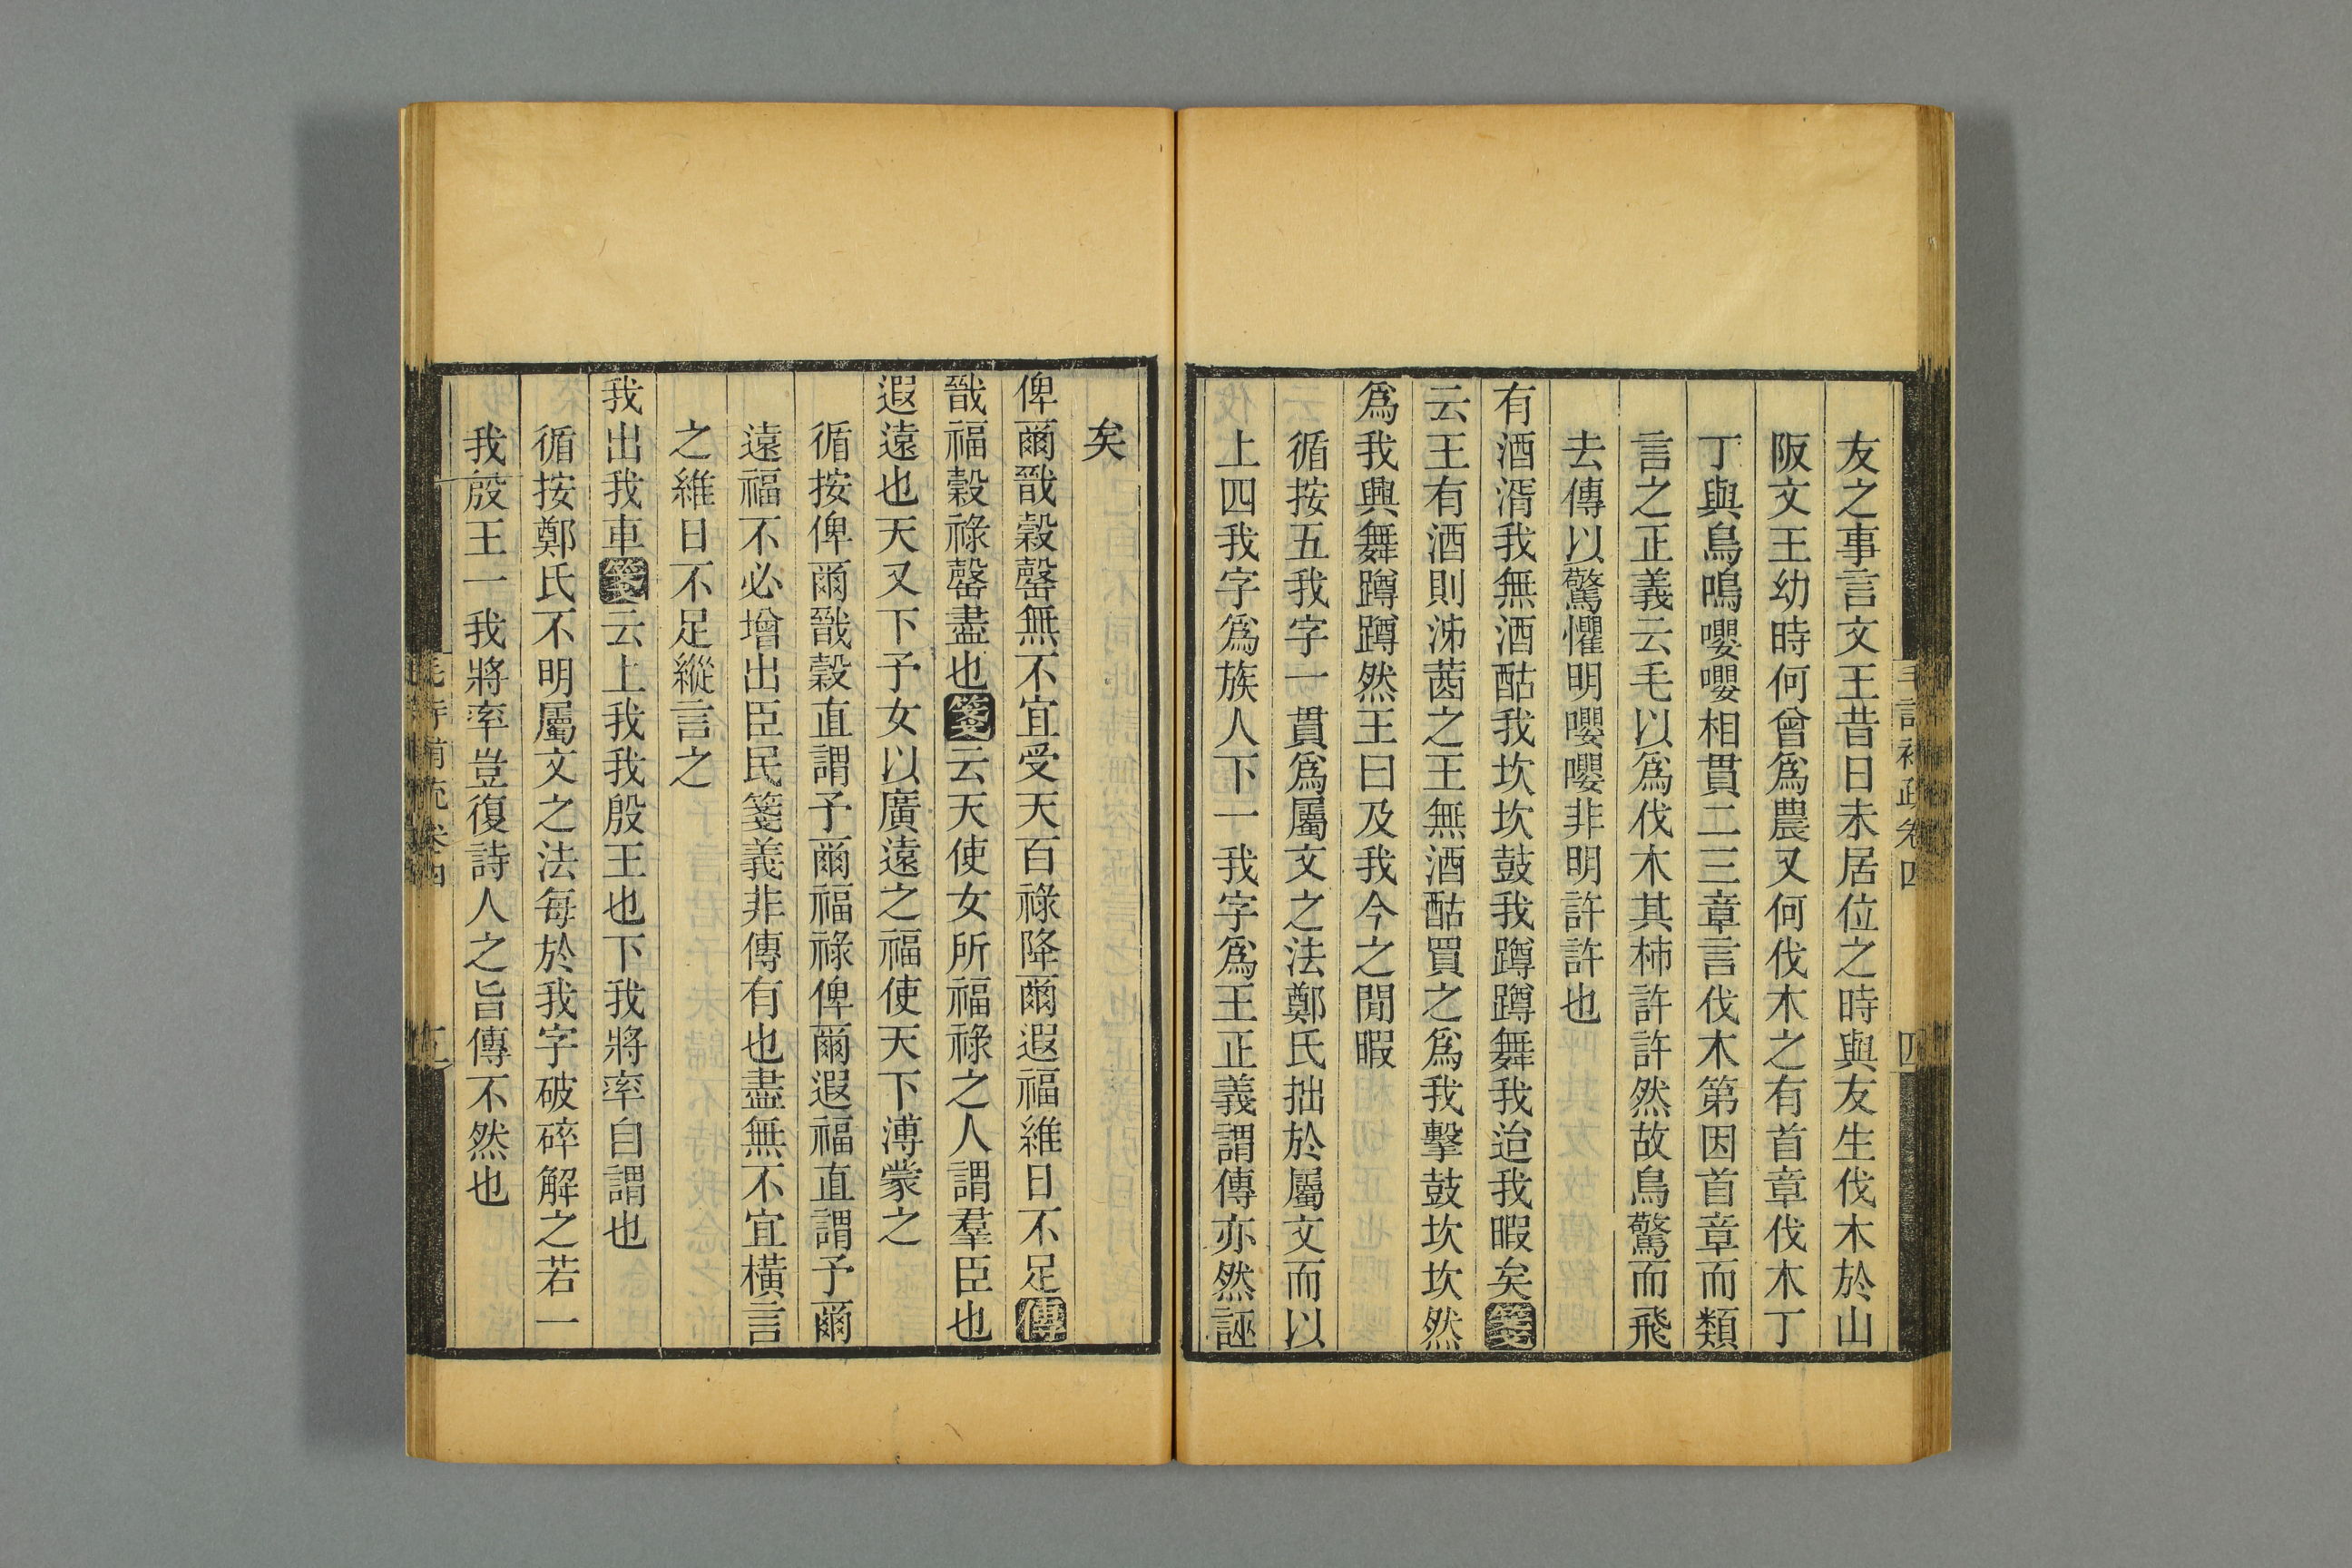 毛詩補疏卷四
四
友之事言文王昔日未居位之時與友生伐木於山
阪文王幼時何曾爲農又何伐木之有首章伐木丁
丁與鳥鳴嚶嚶相貫二三章言伐木第因首章而類
言之正義云毛以爲伐木其柿許許然故鳥驚而飛
去傳以驚懼明嚶嚶非明許許也
有酒湑我無酒酤我坎坎鼓我蹲蹲舞我迨我暇矣箋
云王有酒則泲莤之王無酒酤買之爲我擊鼓坎坎然
爲我興舞蹲蹲然王曰及我今之閒暇
循按五我字一貫爲屬文之法鄭氏拙於屬文而以
上四我字爲族人下一我字爲王正義謂傳亦然誣
矣
俾爾戩穀罄無不宜受天百祿降爾遐福維日不足傳
戩福穀祿罄盡也箋云天使女所福祿之人謂羣臣也
遐遠也天又下予女以廣遠之福使天下溥蒙之
循按俾爾戩穀直謂予爾福祿俾爾遐福直謂予爾
遠福不必增出臣民箋義非傳有也盡無不宜橫言
之維日不足縱言之
我出我車箋云上我我殷王也下我將率自謂也
循按鄭氏不明屬文之法每於我字破碎解之若一
我殷王一我將率豈復詩人之旨傳不然也
毛詩補疏卷四